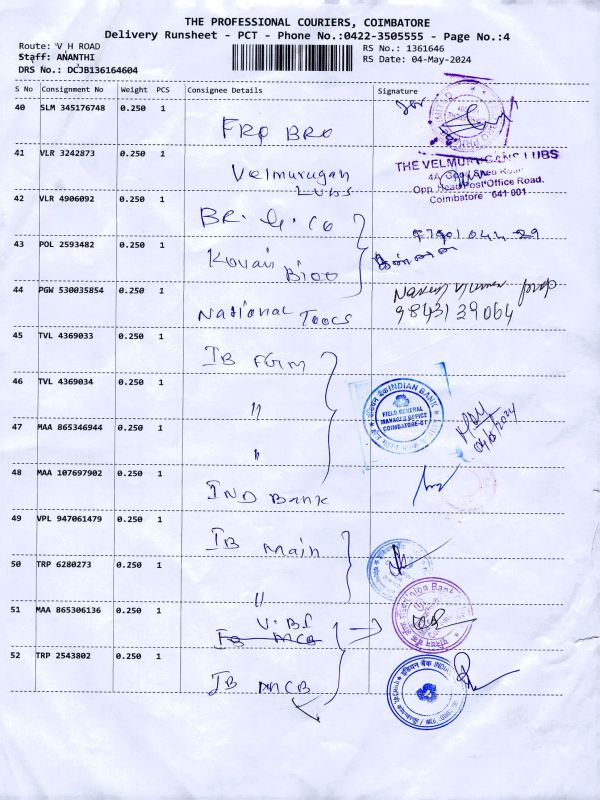 THE PROFESSIONAL COURIERS, COIMBATORE
Delivery Runsheet - PCT - Phone No.:0422-3505555 - Page No.:4
Route: V H ROAD
RS No.: 1361646
Staff: ANANTHI
RS Date: 04-May-2024
DRS No.: DCJB136164604
S No Consignment No Weight PCS Consignee Details Signature
40 SLM 345176748 0.250 1
FRP BRO
41 VLR 3242873 0.250 1
Velmurugan
Lubs
THE VELMURUGANS LUBS
Opp. Head Post Office Road,
Coimbatore 641 001
42 VLR 4906092 0.250 1
BR. G. Co
43 POL 2593482 0.250 1
Kovai Bioo
44 PGW 530035854 0.250 1
National Tools
9843139064
45 TVL 4369033 0.250 1
IB FGM
46 TVL 4369034 0.250 1
"
INDIAN BANK
FIELD GENERAL
MANAGER OFFICE
COIMBATORE-01
47 MAA 865346944 0.250 1
"
48 MAA 107697902 0.250 1
IND Bank
49 VPL 947061479 0.250 1
IB Main
50 TRP 6280273 0.250 1
"
51 MAA 865306136 0.250 1
V. BS
IB MCB
Union Bank
52 TRP 2543802 0.250 1
IB MCB